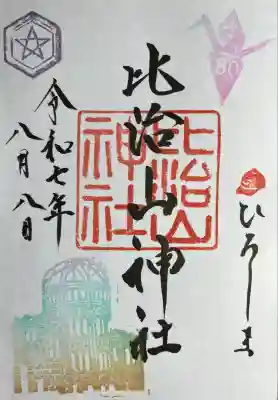 80
ひろしま
比治山神社
比治山
神社
令和七年
八月八日